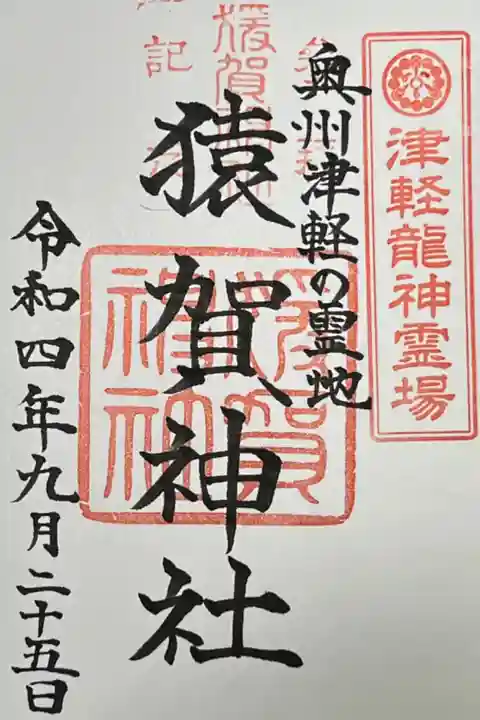 津軽龍神霊場
奥州津軽の霊地
猿賀神社
猿賀
神社
令和四年九月二十五日